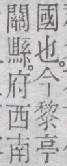 國也。今黎亭
關縣。府西南